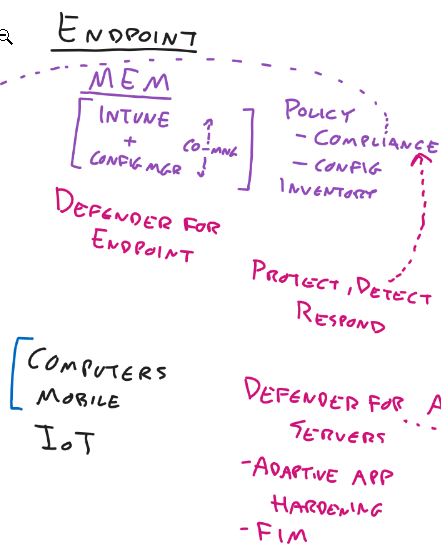 ENDPOINT
MEM
INTUNE
+
CONFIG MGR
CO-MNG
POLICY
- COMPLIANCE
- CONFIG
INVENTORY
DEFENDER FOR
ENDPOINT
PROTECT, DETECT
RESPOND
COMPUTERS
MOBILE
IoT
DEFENDER FOR A
SERVERS ...
- ADAPTIVE APP
HARDENING
- FIM